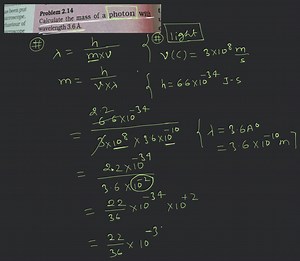 Problem 2.14
Calculate the mass of a photon with
wavelength 3.6 Å.
# light
λ = h / m×v { v(c) = 3×10^8 m/s
m = h / v×λ { h = 6.6×10^-34 J-s
= 6.6×10^-34 / 3×10^8 × 3.6×10^-10 { λ = 3.6 A°
= 3.6×10^-10 m
= 2.2×10^-34 / 3.6×10^-2
= 22/36 ×10^-34 ×10^+2
= 22/36 ×10